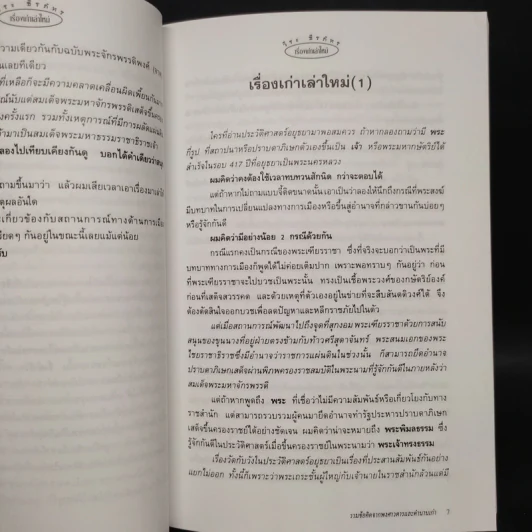 วามเดียวกันกับฉบับพระจักรพรรดิพงศ์
นเลยทีเดียว
ที่เหลือก็จะมีความคลาดเคลื่อนผิดเพี้ยนกันมา
ณ์นับแต่สมเด็จพระมหาจักรพรรดิเสด็จขึ้น
งครั้งแรก รวมทั้งเหตุการณ์ที่มีการผลัดแผ่นดิน
ามาเป็นสมเด็จพระมหาธรรมราชาธิราชเจ้า
ลองไปเทียบเคียงกันดู บอกได้คำเดียวว่าสนุก
ถามขึ้นมาว่า แล้วผมเสียเวลาเอาเรื่องมาเล่า
ตุผลอันใด
เกี่ยวข้องกับสถานการณ์ทางด้านการเมือง
ยดๆ กันอยู่ในขณะนี้เลยแม้แต่น้อย
ับ
เรื่องเก่าเล่าใหม่
เรื่องเก่าเล่าใหม่
เรื่องเก่าเล่าใหม่(1)
ใครที่อ่านประวัติศาสตร์อยุธยามาพอสมควร ถ้าหากลองถามว่ามี พระ
กี่รูป ที่สถาปนาหรือปราบดาภิเษกตัวเองขึ้นเป็น เจ้า หรือพระมหากษัตริย์ได้
สำเร็จในรอบ 417 ปีที่อยุธยาเป็นพระนครหลวง
ผมคิดว่าคงต้องใช้เวลาทบทวนสักนิด กว่าจะตอบได้
แต่ถ้าหากไม่ถามแบบจี้อดิตขนาดนั้นเอาเป็นว่าลองให้นึกถึงกรณีที่พระสงฆ์
มีบทบาทในการเปลี่ยนแปลงทางการเมืองหรือขึ้นสู่อำนาจที่กล่าวขานกันบ่อยๆ
หรือรู้จักกันดี
ผมคิดว่ามีอย่างน้อย 2 กรณีด้วยกัน
กรณีแรกคงเป็นกรณีของพระเฑียรราชา ซึ่งที่จริงจะบอกว่าเป็นพระที่มี
บทบาททางการเมืองก็พูดได้ไม่ค่อยเต็มปาก เพราะพอทราบๆ กันอยู่ว่า ก่อน
ที่พระเฑียรราชาจะไปบวชเป็นพระนั้น ทรงเป็นเชื้อพระวงศ์ของกษัตริย์องค์
ก่อนที่เสด็จสวรรคต และด้วยเหตุที่ตัวเองอยู่ในข่ายที่จะสืบสันตติวงศ์ได้ จึง
ต้องตัดสินใจออกบวชเพื่อลดปัญหาและหลีกราชภัยไปในตัว
แต่เมื่อสถานการณ์พัฒนาไปถึงจุดที่สุกงอม พระเฑียรราชาด้วยการสนับ
สนุนของขุนนางที่อยู่ฝ่ายตรงข้ามกับท้าวศรีสุดาจันทร์ พระสนมเอกของพระ
ไชยราชาธิราชซึ่งมีอำนาจว่าราชการแผ่นดินในช่วงนั้น ก็สามารถยึดอำนาจ
ปราบดาภิเษกเสด็จผ่านพิภพครองราชสมบัติในพระนามที่รู้จักกันดีในภายหลังว่า
สมเด็จพระมหาจักรพรรดิ
แต่ถ้าหากพูดถึง พระ ที่เชื่อว่าไม่มีความสัมพันธ์หรือเกี่ยวโยงกับทาง
ราชสำนัก แต่สามารถรวบรวมผู้คนมายึดอำนาจทำรัฐประหารปราบดาภิเษก
เสด็จขึ้นครองราชย์ได้อย่างชัดเจน ผมคิดว่าน่าจะหมายถึง พระพิมลธรรม ซึ่ง
รู้จักกันดีในประวัติศาสตร์เมื่อขึ้นครองราชย์ในพระนามว่า พระเจ้าทรงธรรม
เรื่องวัดกับวังในประวัติศาสตร์อยุธยาเป็นเรื่องที่ประสานสัมพันธ์กันอย่าง
แยกไม่ออก ทั้งนี้ก็เพราะว่าพระเถระชั้นผู้ใหญ่กับเจ้านายในราชสำนักล้วนแต่มี
7